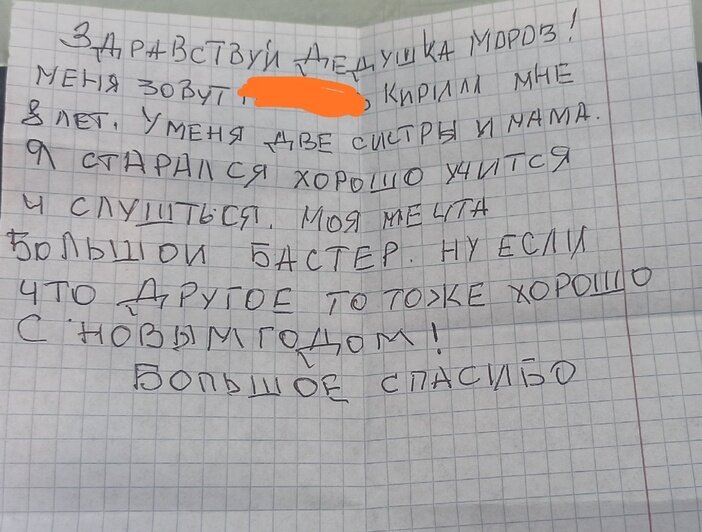 ЗДРАВСТВУЙ ДЕДУШКА МОРОЗ!
МЕНЯ ЗОВУТ , КИРИЛЛ МНЕ
8 ЛЕТ. У МЕНЯ ДВЕ СИСТРЫ И МАМА.
Я СТАРАЛСЯ ХОРОШО УЧИТСЯ
И СЛУШТЬСЯ. МОЯ МЕЧТА
БОЛЬШОЙ БАСТЕР. НУ ЕСЛИ
ЧТО ДРУГОЕ ТО ТОЖЕ ХОРОШО
С НОВЫМ ГОДОМ!
БОЛЬШОЕ СПАСИБО